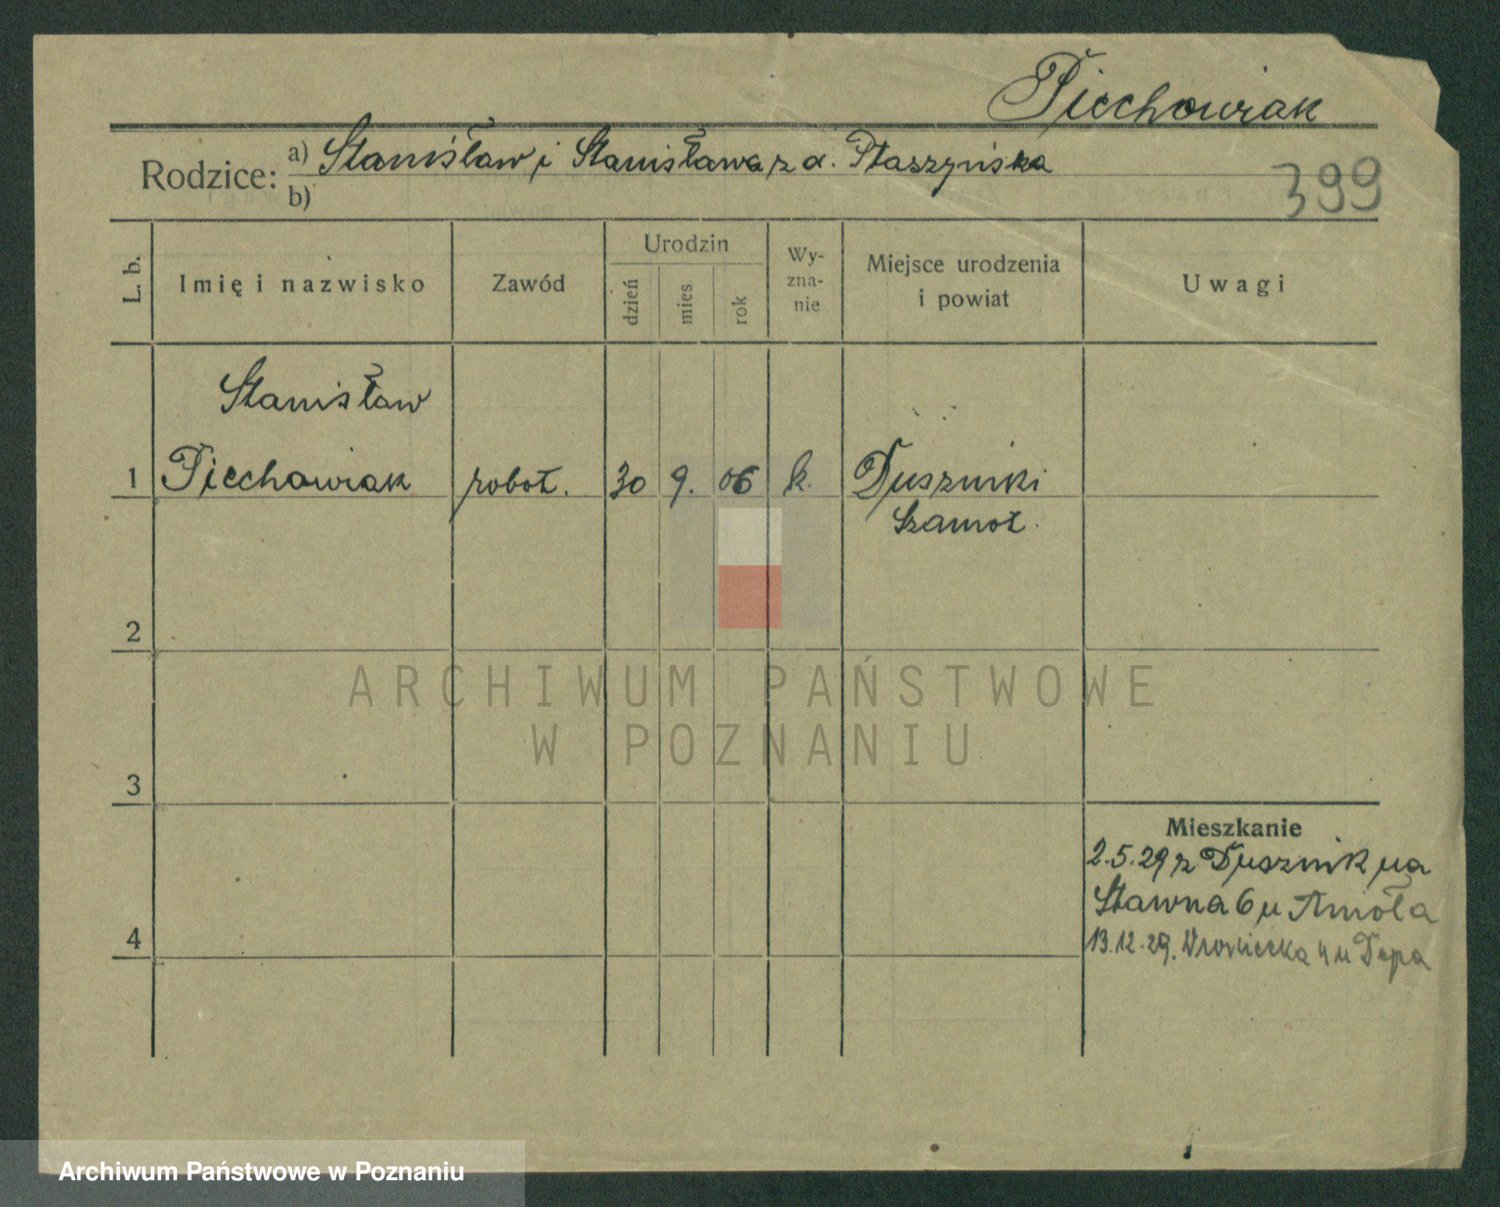 Piechowiak
Rodzice: a) Stanisław i Stanisława z d. Ptaszyńska
b)
399
L. b.
Imię i nazwisko
Zawód
Urodzin
dzień
mies.
rok
Wy-
zna-
nie
Miejsce urodzenia
i powiat
Uwagi
Stanisław
1 Piechowiak robot. 30 9. 06 k. Duszniki
Szamot.
2
ARCHIWUM PAŃSTWOWE
W POZNANIU
3
Mieszkanie
2.5.29 z Dusznik na
Stawna 6 u Anioła
4
13.12.29. Wroniecka 4 u Depa
Archiwum Państwowe w Poznaniu